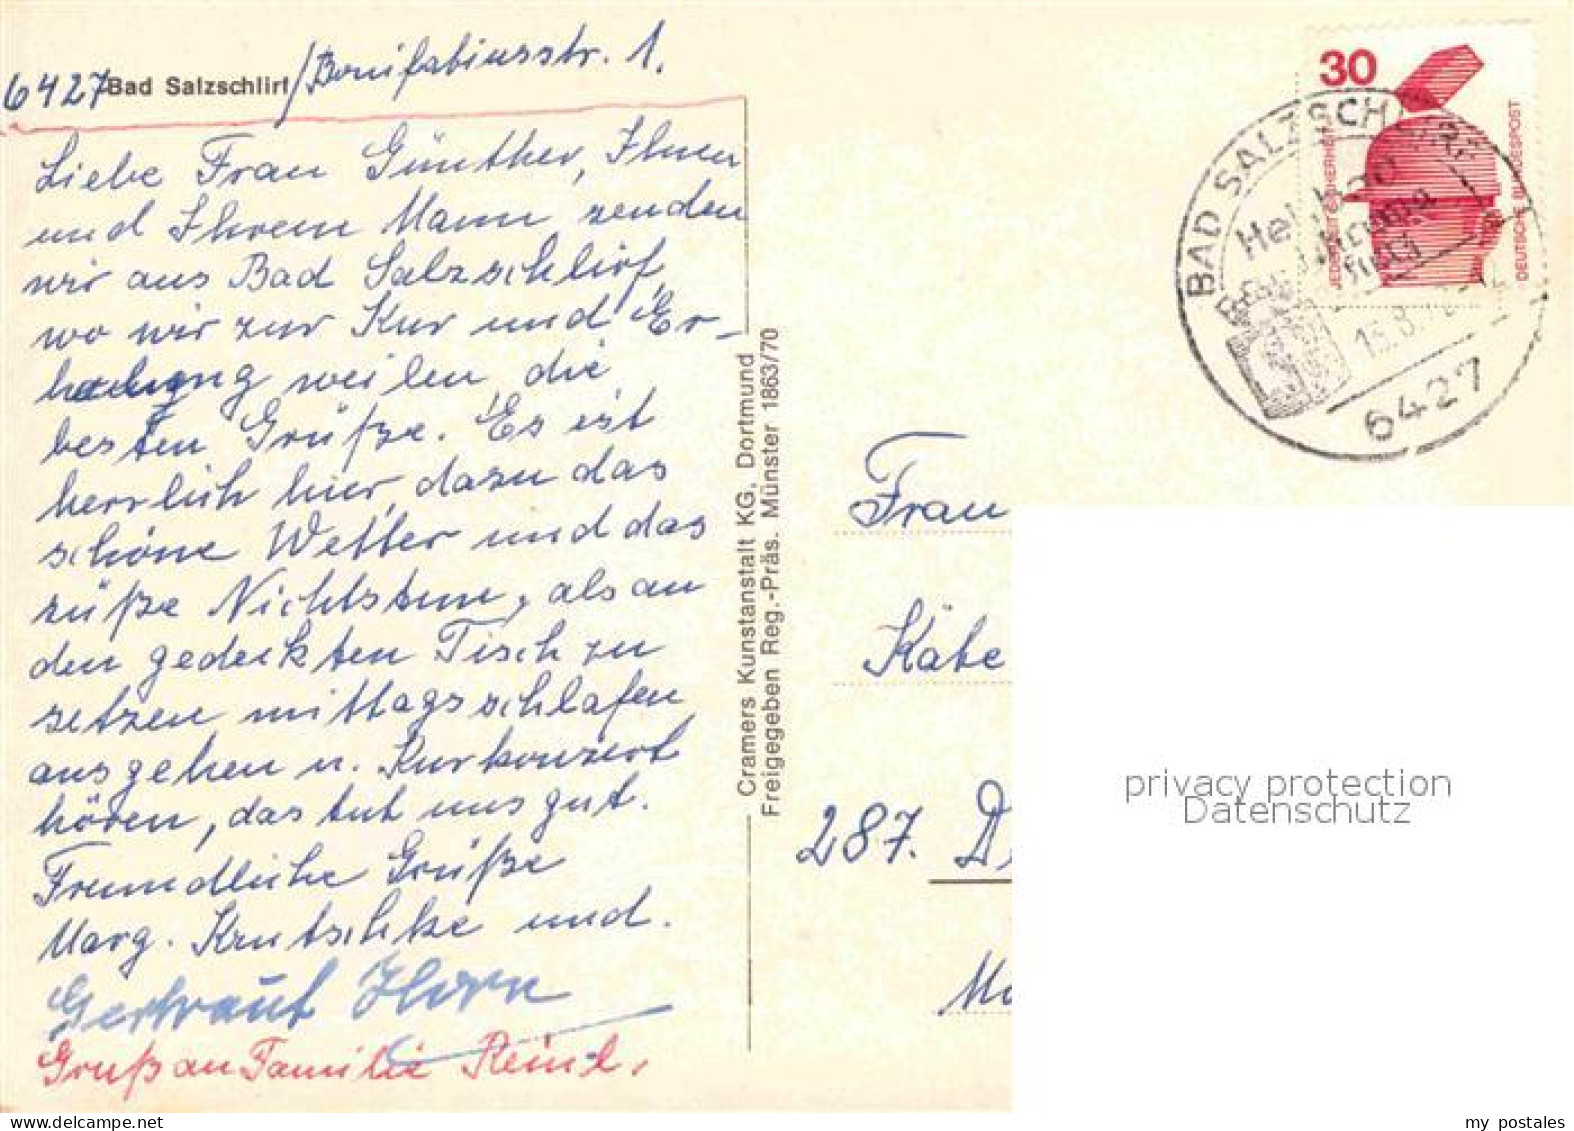 6427 Bad Salzschlirf / Bonifatiusstr. 1.
Liebe Frau Günther, Ihnen
und Ihrem Mann, senden
wir aus Bad Salzschlirf,
wo wir zur Kur und Er-
holung weilen, die
besten Grüße. Es ist
herrlich hier, dazu das
schöne Wetter und das
süße Nichtstun, als an
den gedeckten Tisch zu
setzen, mittagsschlafen,
ausgehen u. Kurkonzert
hören, das tut uns gut.
Freundliche Grüße
Marg. Krutschke und.
Gertraut Horn
Gruß an Familie Reinl.
Cramers Kunstanstalt KG, Dortmund
Freigegeben Reg.-Präs. Münster 1863/70
30
JEDERZEIT SICHERHEIT
DEUTSCHE BUNDESPOST
BAD SALZSCHLIRF
Heilbad
6427
Frau
Käte
287. D
privacy protection
Datenschutz
my postales